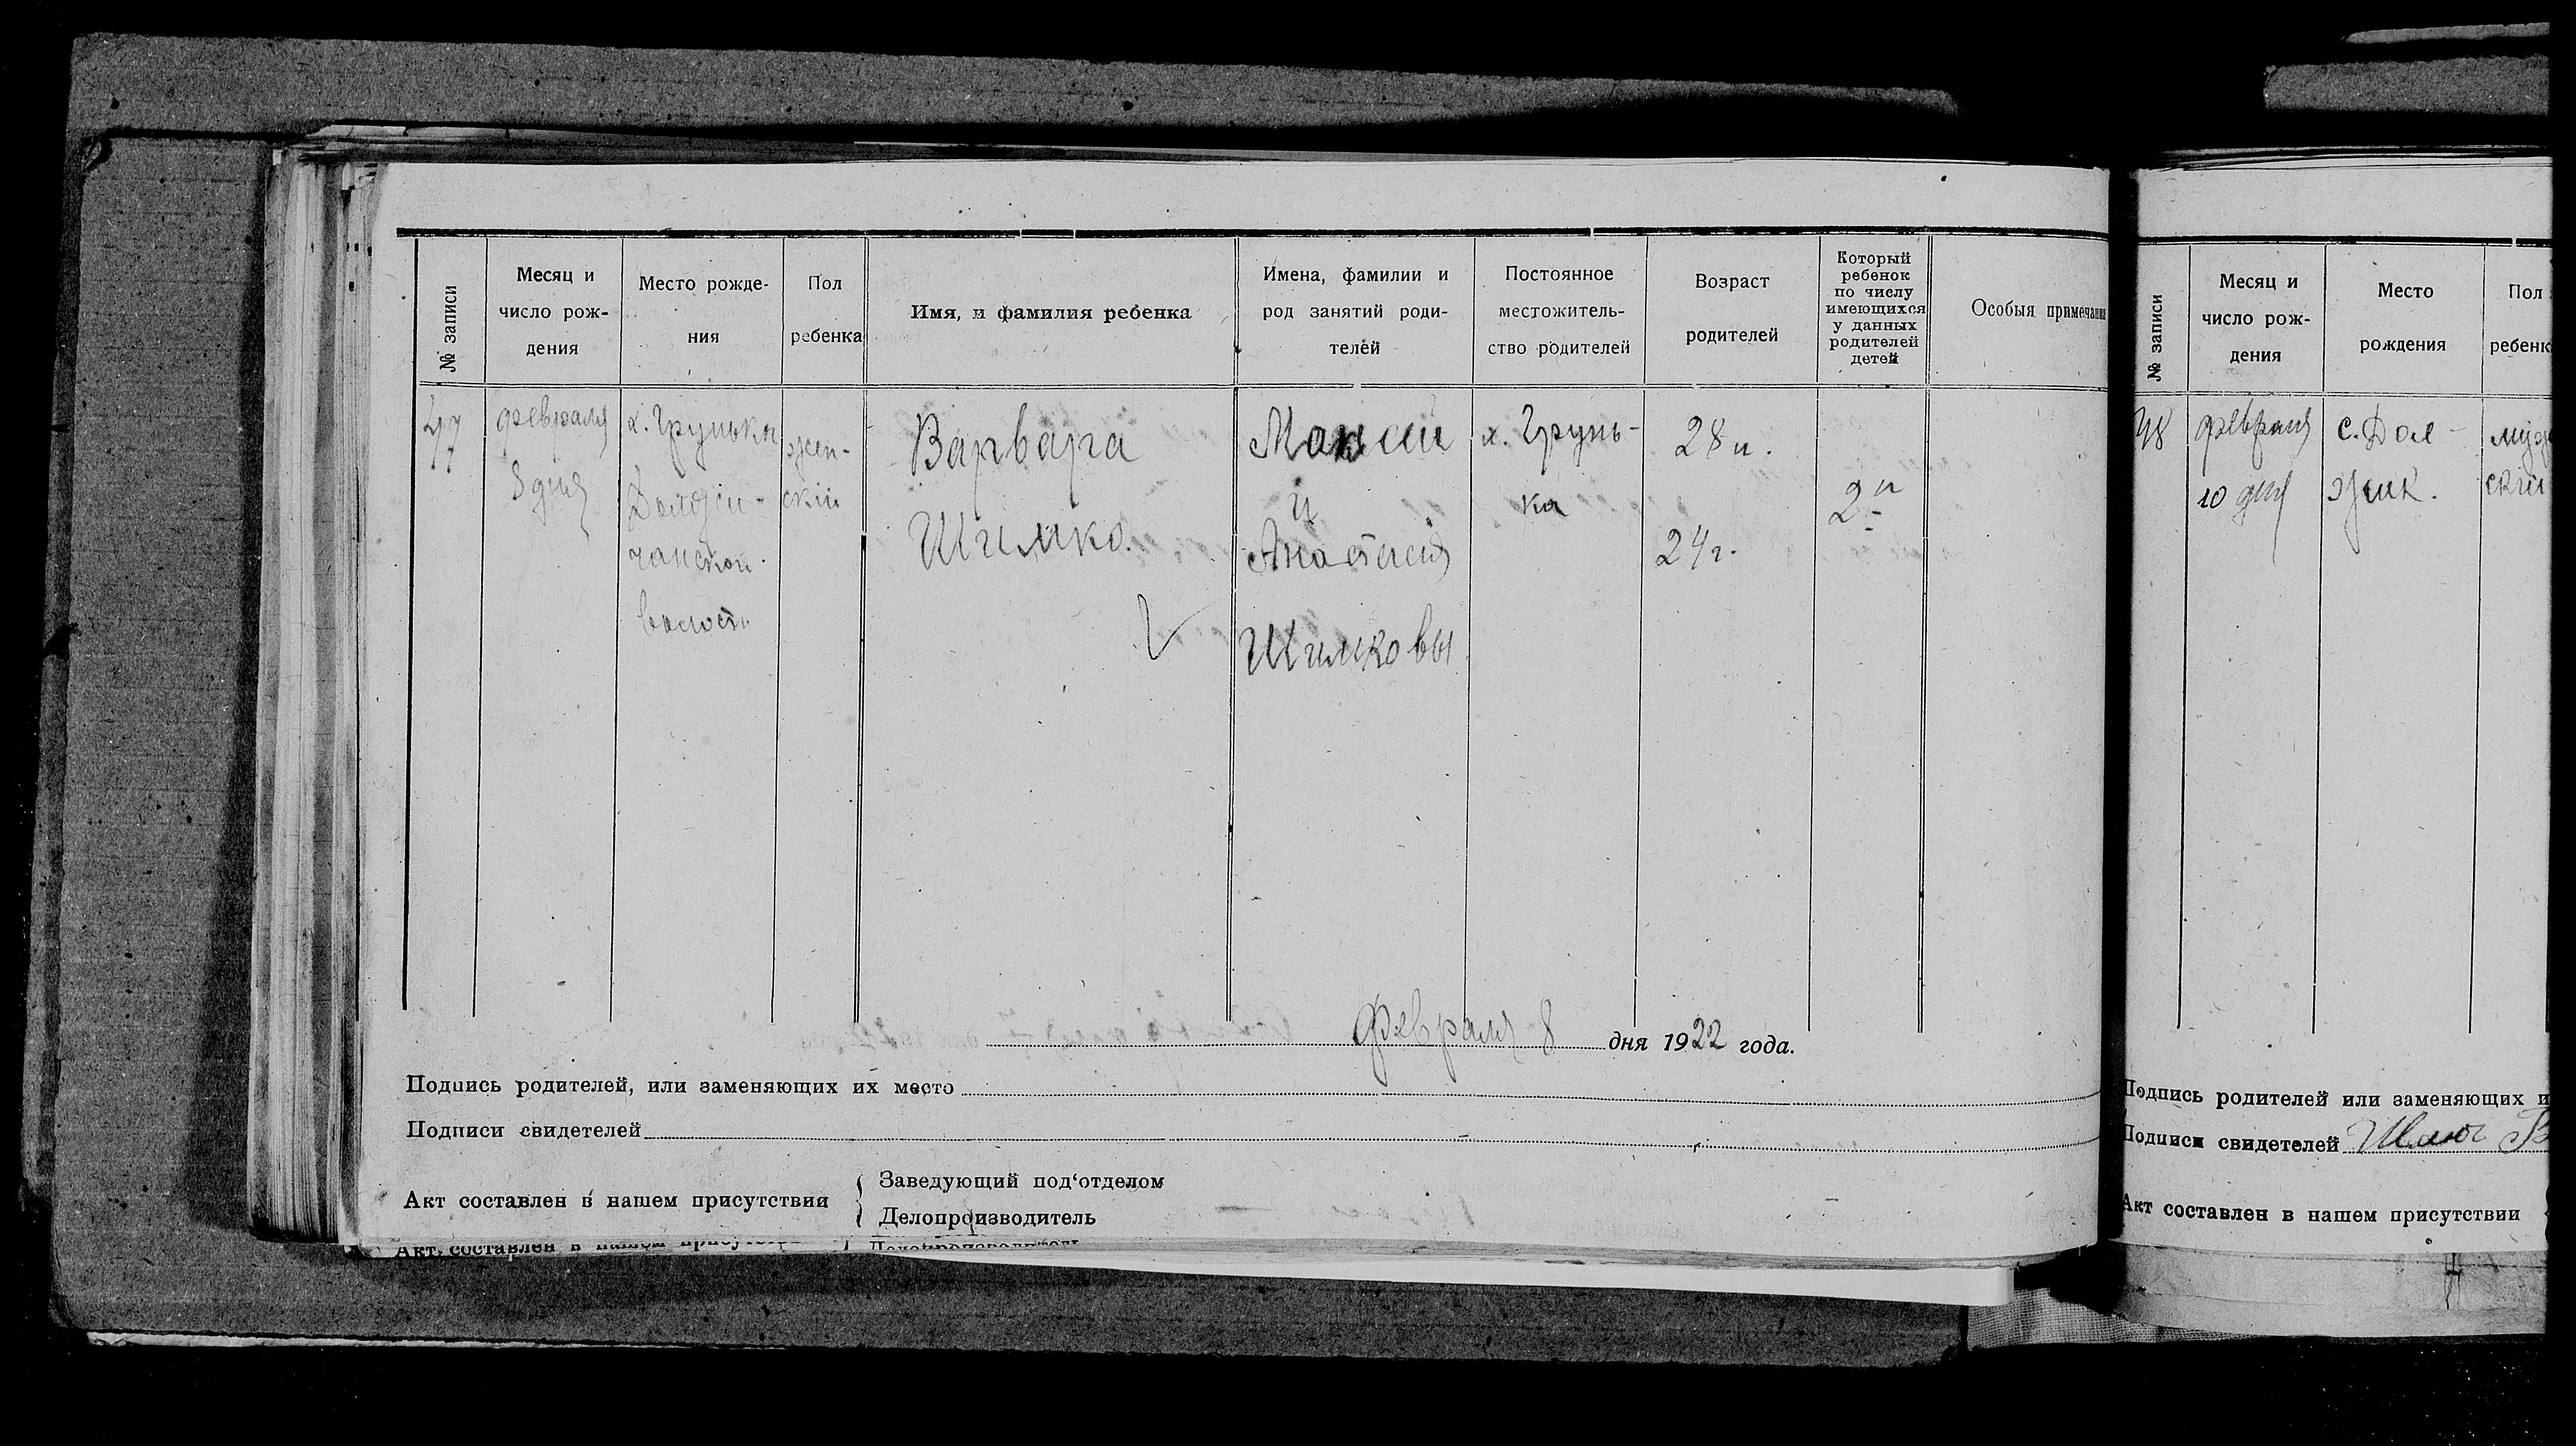 № записи
Месяц и
число рож-
дения
Место рожде-
ния
Пол
ребенка
Имя, и фамилия ребенка
Имена, фамилии и
род занятий роди-
телей
Постоянное
местожитель-
ство родителей
Возраст
родителей
Который
ребенок
по числу
имеющихся
у данных
родителей
детей
Особыя примечания
47
февраля
8 дня
х. Грунька
чанской
волости
жен-
скій
Варвара
Шимко.
и
Анастасия
Шимковы
х. Грунь-
ка
28 л.
24 г.
2й
Февраля 8 дня 1922 года.
Подпись родителей, или заменяющих их место
Подписи свидетелей
Акт составлен в нашем присутствии
Заведующий под‘отделом
Делопроизводитель
Акт составлен в нашем присутств
Делопроизводитель
№ записи
Месяц и
число рож-
дения
Место
рождения
Пол
ребенк
48
февраля
10 дня
с. Дол-
жик.
муж
скій
Подпись родителей или заменяющих и
Подписи свидетелей
Акт составлен в нашем присутствии